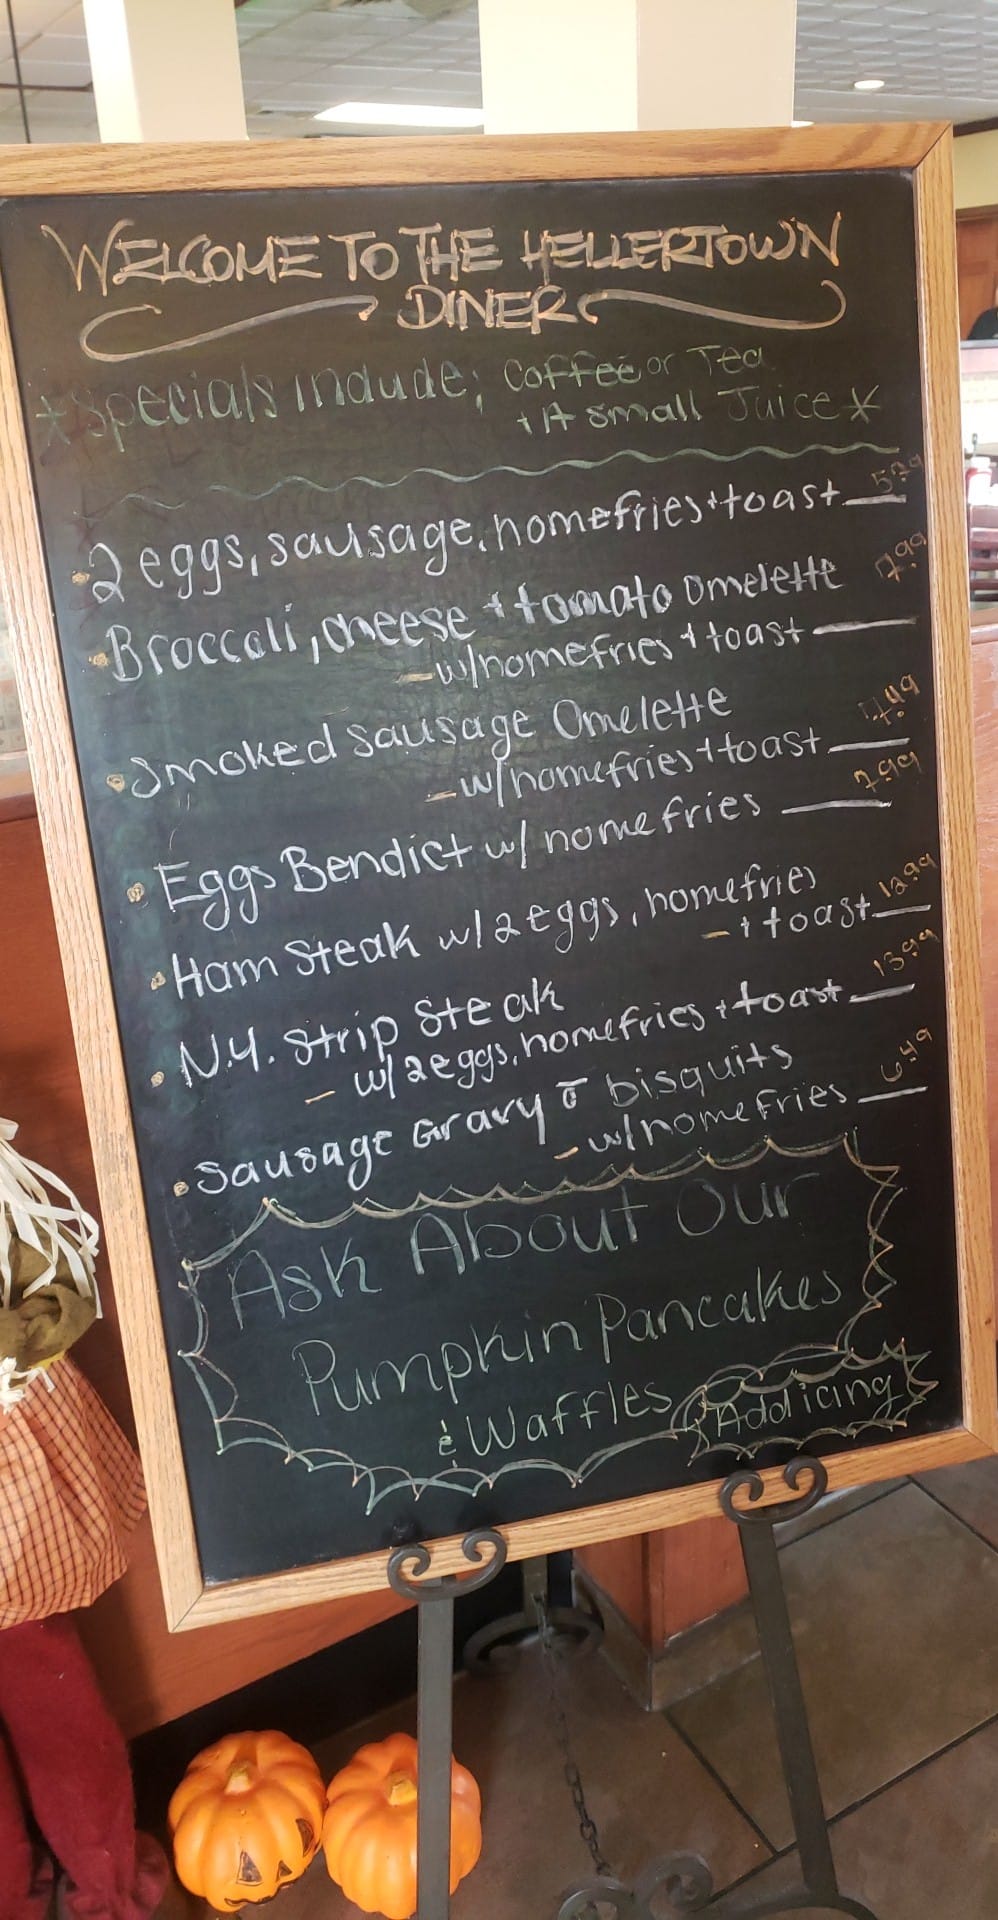 WELCOME TO THE HELLERTOWN
DINER
*Specials Include; Coffee or Tea
+ A small Juice *
• 2 eggs, sausage, homefries + toast
• Broccoli, cheese + tomato Omelette 7.99
- w/homefries + toast
• Smoked sausage Omelette 7.49
- w/homefries + toast
• Eggs Bendict w/ homefries 7.99
• Ham Steak w/ 2 eggs, homefries
- + toast 12.99
• N.Y. Strip Steak
- w/ 2 eggs, homefries + toast 13.99
• Sausage Gravy & bisquits
- w/homefries 6.49
Ask About Our
Pumpkin Pancakes
& Waffles
Addicing